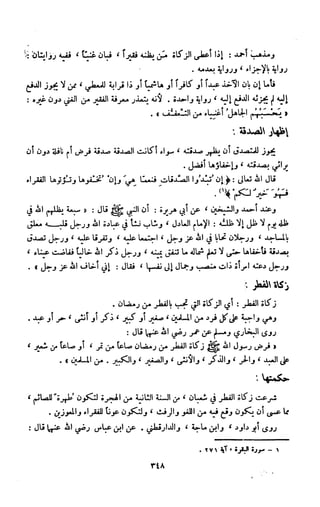 ومذهب أحمد : إذا أعطى الزكاة من يظنه فقيراً ، فبان غنياً ، ففيه روايتان :
رواية بالإجزاء ، ورواية بعدمه .
فأما إن بان الآخذ عبداً أو كافراً أو هاشمياً أو ذا قرابة للمعطي ، ممن لا يجوز الدفع
إليه لم يجزئه الدفع إليه ، رواية واحدة . لأنه يتعذر معرفة الفقير من الغني دون غيره :
« يحسبهم الجاهل أغنياء من التعفف » .
إظهار الصدقة :
يجوز للمتصدق أن يظهر صدقته ، سواء أكانت الصدقة صدقة فرض أم نافلة دون أن
يرائي بصدقته ، وإخفاؤها أفضل .
قال الله تعالى : ﴿ إن تبدوا الصدقات فنعما هي وإن تخفوها وتؤتوها الفقراء
فهو خير لكم ﴾(١) .
وعند أحمد والشيخين ، عن أبي هريرة : أن النبي ﷺ قال : « سبعة يظلهم الله في
ظله يوم لا ظل إلا ظله : الإمام العادل ، وشاب نشأ في عبادة الله ورجل قلبه معلق
بالمساجد ، ورجلان تحابا في الله عز وجل ، اجتمعا عليه ، وتفرقا عليه ، ورجل تصدق
بصدقة فأخفاها حتى لا تعلم شماله ما تنفق يمينه ، ورجل ذكر الله خالياً ففاضت عيناه ،
ورجل دعته امرأة ذات منصب وجمال إلى نفسها ، فقال : إني أخاف الله عز وجل » .
زكاة الفطر :
زكاة الفطر : أي الزكاة التي تجب بالفطر من رمضان .
وهي واجبة على كل فرد من المسلمين ، صغير أو كبير ، ذكر أو أنثى ، حر أو عبد .
روى البخاري ومسلم عن عمر رضي الله عنهما قال :
« فرض رسول الله ﷺ زكاة الفطر من رمضان صاعاً من تمر ، أو صاعاً من شعير ،
على العبد ، والحر ، والذكر ، والأنثى ، والصغير ، والكبير . من المسلمين » .
حكمتها :
شرعت زكاة الفطر في شعبان ، من السنة الثانية من الهجرة لتكون طهرة للصائم ،
مما عسى أن يكون وقع فيه من اللغو والرفث ، ولتكون عوناً للفقراء والمعوزين .
روى أبو داود ، وابن ماجة ، والدارقطني . عن ابن عباس رضي الله عنهما قال :
١ - سورة البقرة ، آية ٢٧١ .
٣٤٨